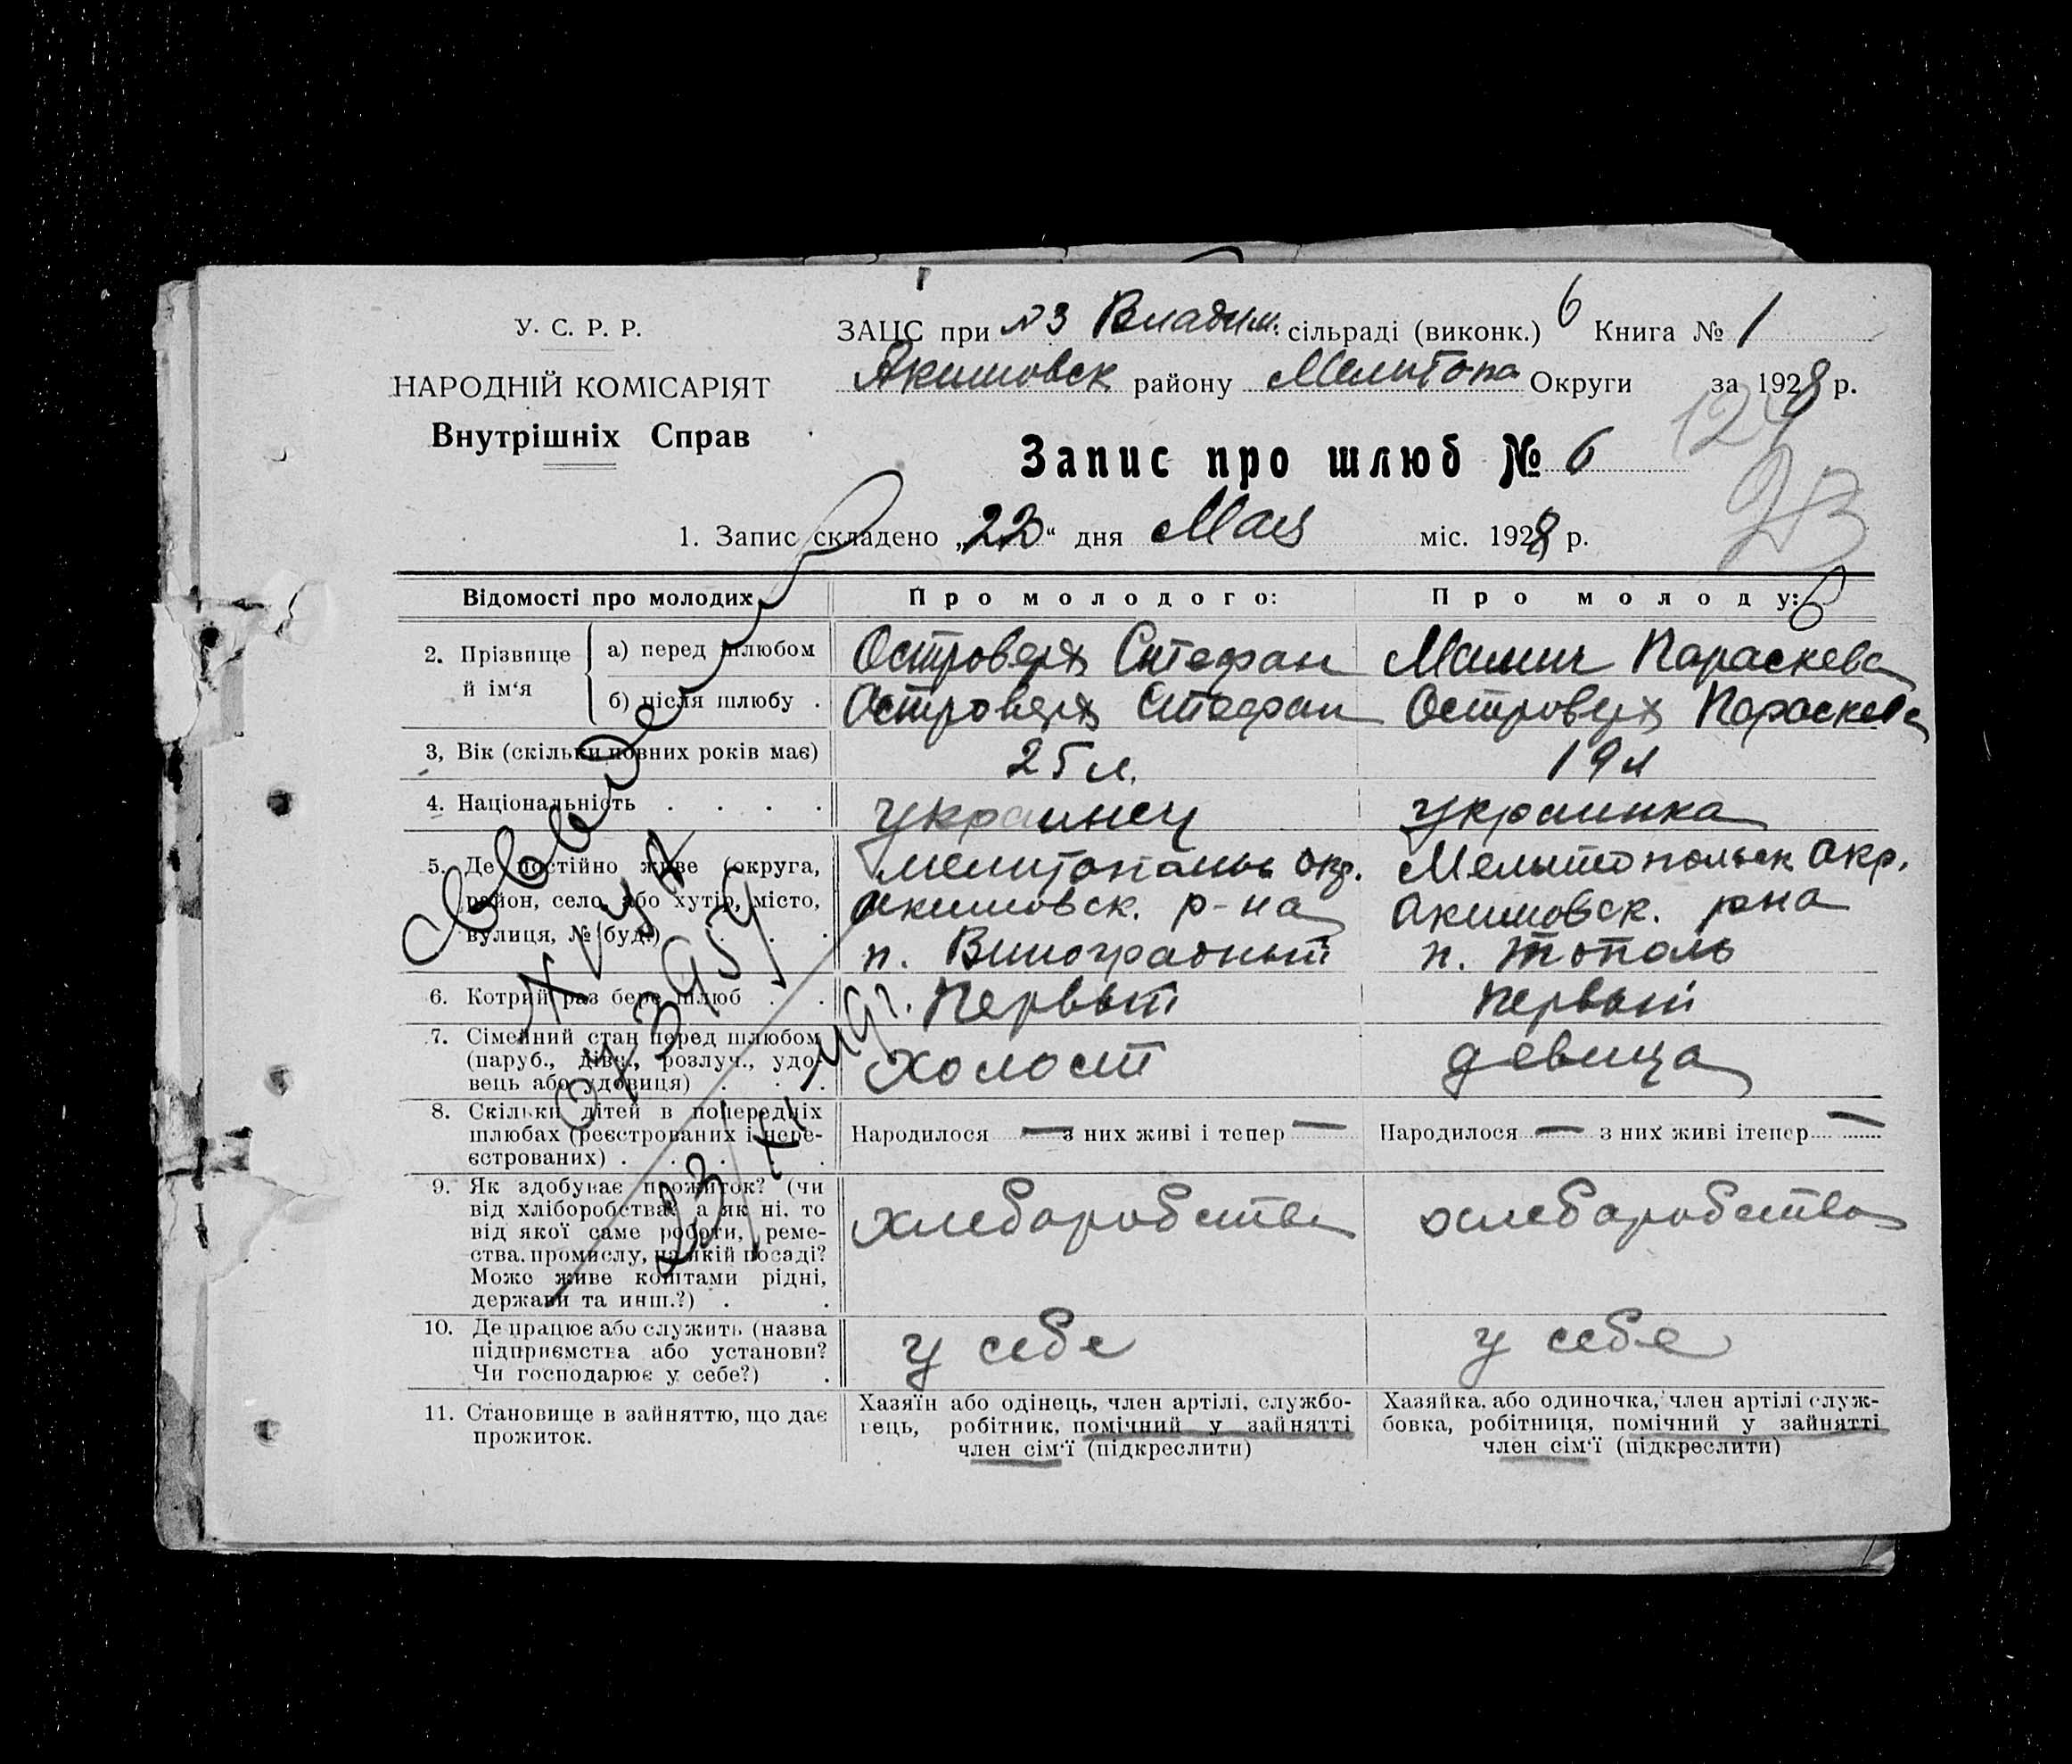 У. С. Р. Р.
НАРОДНІЙ КОМІСАРІЯТ
Внутрішніх Справ
ЗАЦС при №3 Владим. сільраді (виконк.) 6 Книга № 1
Акимовск району Мелитопо Округи за 1928 р.
Запис про шлюб № 6
1. Запис складено „22“ дня Мая міс. 1928 р.
Відомості про молодих
Про молодого:
Про молоду:
2. Прізвище й ім'я
а) перед шлюбом Островерх Стефан
б) після шлюбу . Островерх Стефан
Параскева
Островерх Параскева
3, Вік (скільки повних років має) 25 л. 19 л
4. Національність . . . . украинец украинка
5. Де постійно живе (округа,
район, село, або хутір, місто,
вулиця, № буд.) . . .
окр.
Акимовск. р-на
п. Виноградный
Мелитопольск окр.
Акимовск. рна
п. Тополь
6. Котрий раз бере шлюб . . Первый Первый
7. Сімейний стан перед шлюбом
(паруб., дівч., розлуч., удо-
вець або удовиця) . . .
холост девица
8. Скільки дітей в попередніх
шлюбах (реєстрованих і нере-
єстрованих) . . . .
Народилося — з них живі і тепер — Народилося — з них живі ітепер —
9. Як здобуває прожиток? (чи
від хліборобства? а як ні, то
від якої саме роботи, реме-
ства, промислу, на якій посаді?
Може живе коштами рідні,
держави та инш.?) . .
хлебаробство хлебаробство
10. Де працює або служить (назва
підприємства або установи?
Чи господарює у себе?) .
у себе у себе
11. Становище в зайняттю, що дає
прожиток.
Хазяїн або одінець, член артілі, службо-
вець, робітник, помічний у зайнятті
член сім'ї (підкреслити)
Хазяйка, або одиночка, член артілі служ-
бовка, робітниця, помічний у зайнятті
член сім'ї (підкреслити)